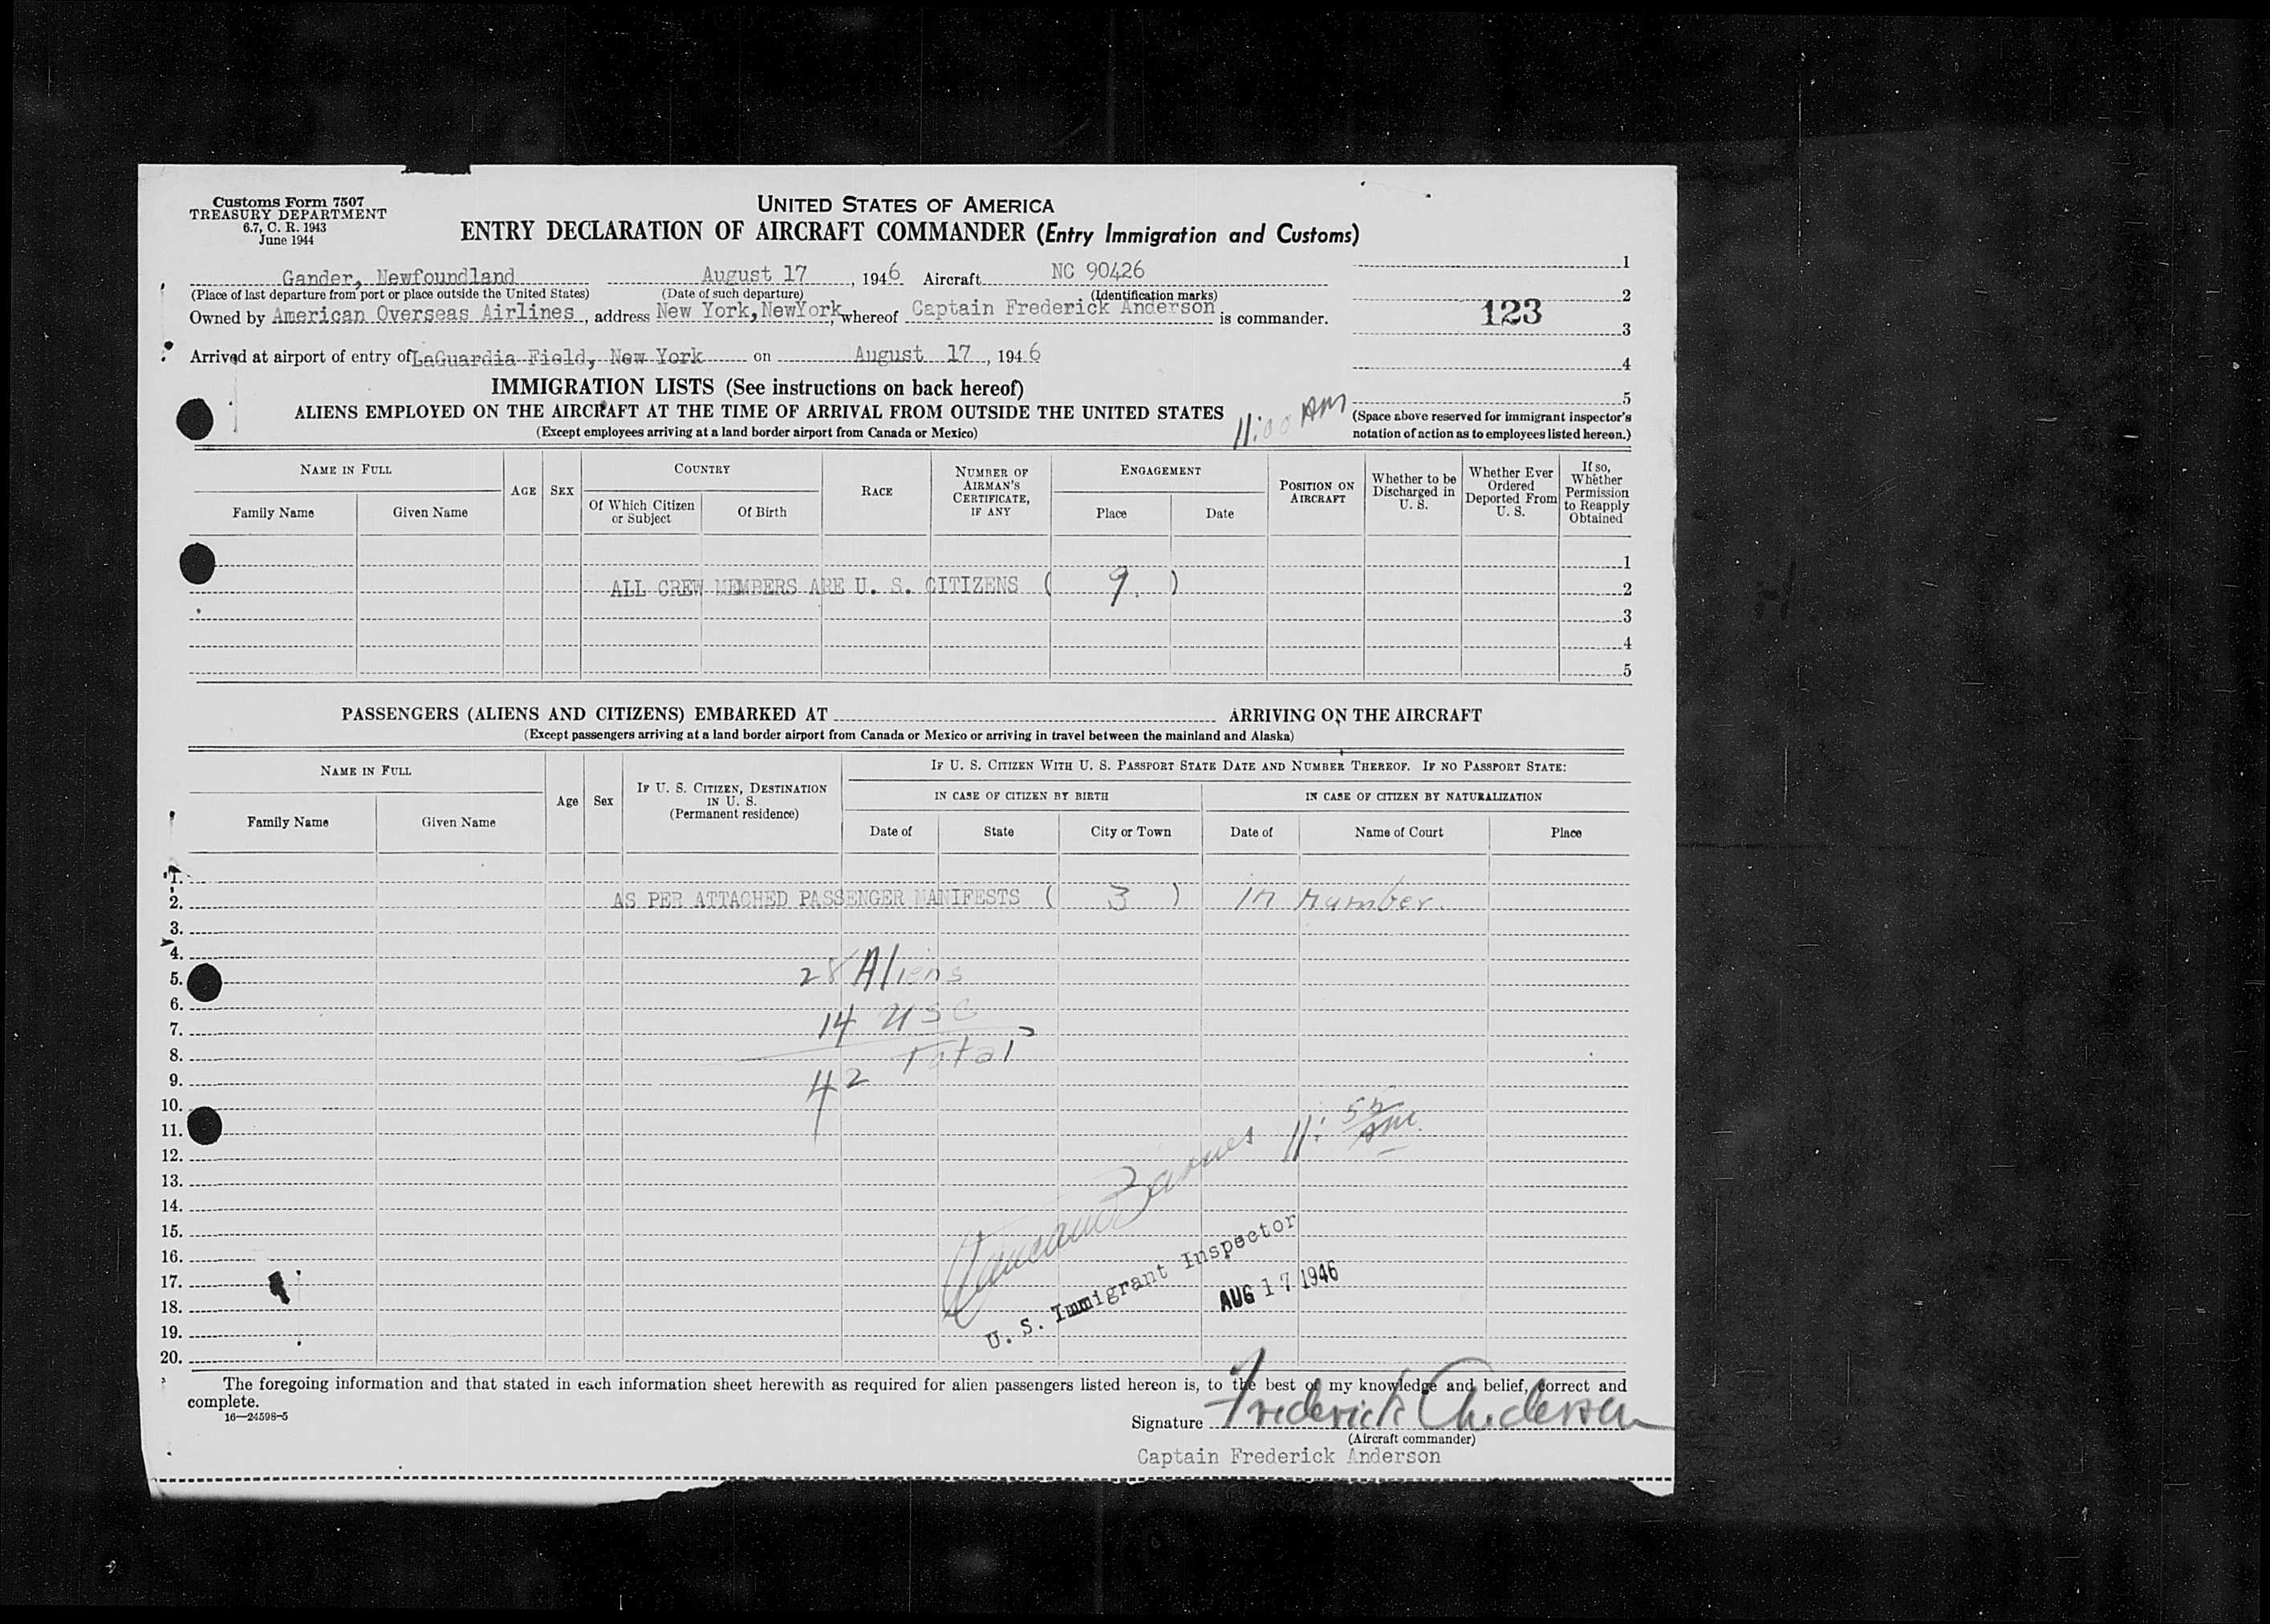 Customs Form 7507
TREASURY DEPARTMENT
6.7, C. R. 1943
June 1944
UNITED STATES OF AMERICA
ENTRY DECLARATION OF AIRCRAFT COMMANDER (Entry Immigration and Customs)
Gander, Newfoundland August 17, 1946 Aircraft NC 90426
(Place of last departure from port or place outside the United States) (Date of such departure) (Identification marks)
Owned by American Overseas Airlines, address New York, NewYork, whereof Captain Frederick Anderson is commander.
Arrived at airport of entry of LaGuardia Field, New York on August 17, 1946
1
2
123
3
4
5
IMMIGRATION LISTS (See instructions on back hereof)
ALIENS EMPLOYED ON THE AIRCRAFT AT THE TIME OF ARRIVAL FROM OUTSIDE THE UNITED STATES
(Except employees arriving at a land border airport from Canada or Mexico)
11:00 AM
(Space above reserved for immigrant inspector's
notation of action as to employees listed hereon.)
NAME IN FULL
Family Name Given Name
AGE SEX
COUNTRY
Of Which Citizen
or Subject
Of Birth
RACE
NUMBER OF
AIRMAN'S
CERTIFICATE,
IF ANY
ENGAGEMENT
Place Date
POSITION ON
AIRCRAFT
Whether to be
Discharged in
U. S.
Whether Ever
Ordered
Deported From
U. S.
If so,
Whether
Permission
to Reapply
Obtained
1
ALL CREW MEMBERS ARE U. S. CITIZENS ( 9. ) 2
3
4
5
PASSENGERS (ALIENS AND CITIZENS) EMBARKED AT ARRIVING ON THE AIRCRAFT
(Except passengers arriving at a land border airport from Canada or Mexico or arriving in travel between the mainland and Alaska)
NAME IN FULL
Family Name Given Name
Age Sex
IF U. S. CITIZEN, DESTINATION
IN U. S.
(Permanent residence)
IF U. S. CITIZEN WITH U. S. PASSPORT STATE DATE AND NUMBER THEREOF. IF NO PASSPORT STATE:
IN CASE OF CITIZEN BY BIRTH IN CASE OF CITIZEN BY NATURALIZATION
Date of State City or Town Date of Name of Court Place
1.
2. AS PER ATTACHED PASSENGER MANIFESTS ( 3 ) in number.
3.
4.
5. 28 Aliens
6.
7. 14 USC
8. Total
9. 42
10.
11.
12.
13.
14.
15.
16.
17.
18.
19.
20.
Barnes 11:
AM
U. S. Immigrant Inspector
AUG 17 1946
The foregoing information and that stated in each information sheet herewith as required for alien passengers listed hereon is, to the best of my knowledge and belief, correct and
complete.
16—24598-5
Signature Frederick Anderson
(Aircraft commander)
Captain Frederick Anderson